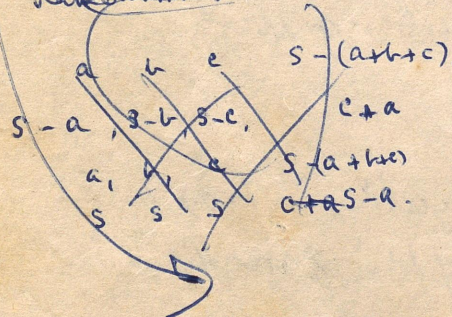 a b c S-(a+b+c)
S-a, S-b, S-c, c+a
a, b, c S-(a+b+c)
S S S c+a S-a.